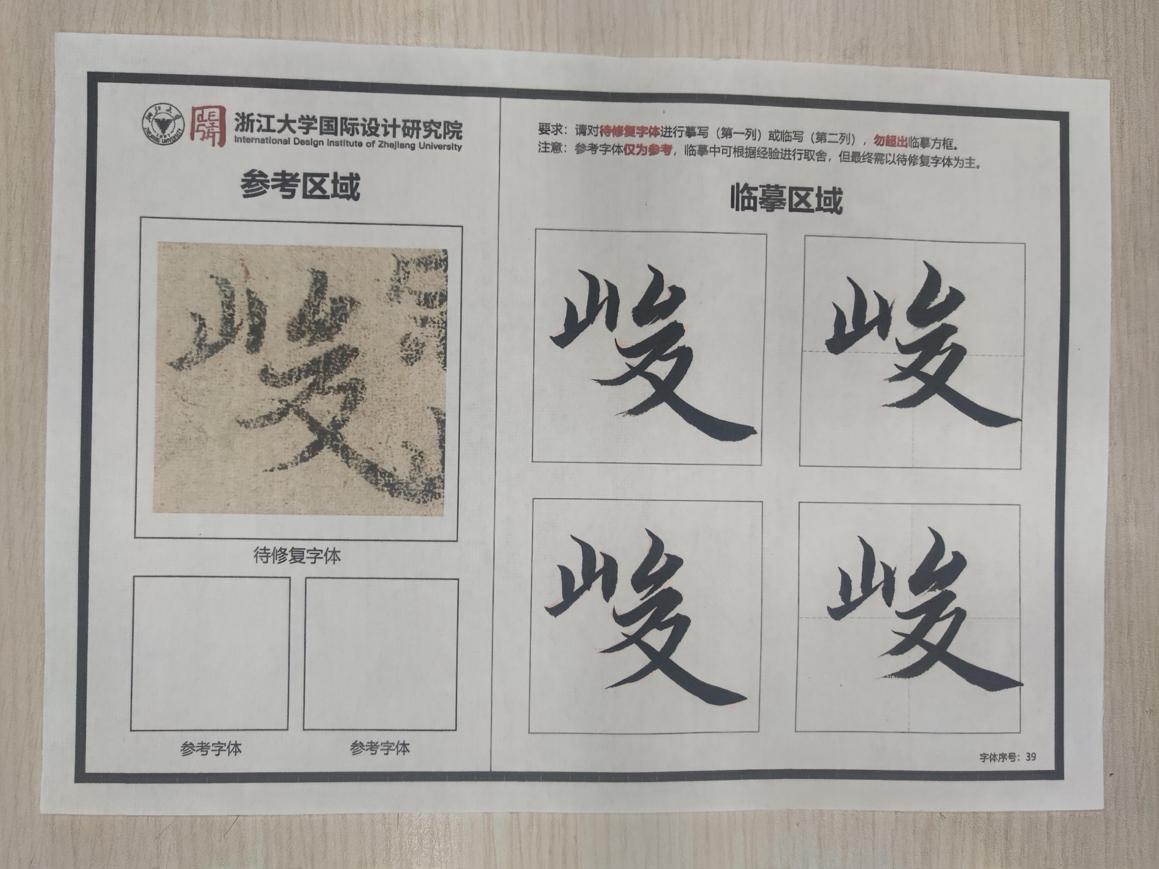 浙江大学国际设计研究院
International Design Institute of Zhejiang University
参考区域
峻
待修复字体
参考字体 参考字体
要求：请对待修复字体进行摹写（第一列）或临写（第二列），勿超出临摹方框。
注意：参考字体仅为参考，临摹中可根据经验进行取舍，但最终需以待修复字体为主。
临摹区域
峻 峻
峻 峻
字体序号：39